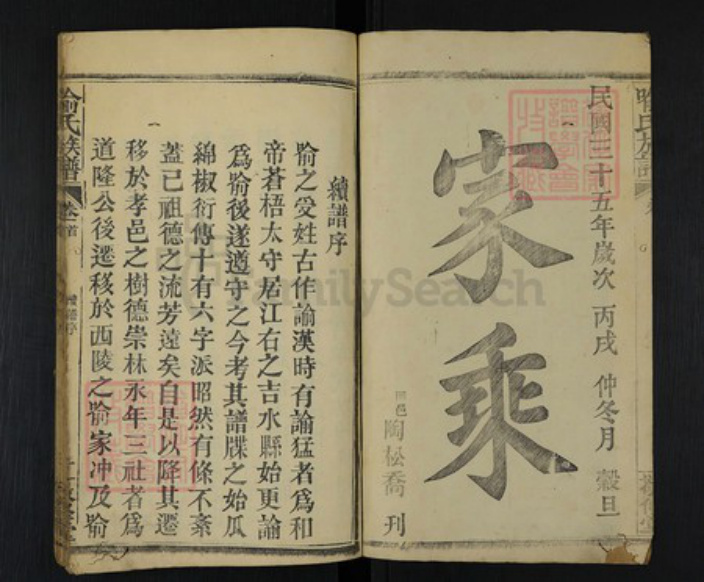 民國三十五年歲次 丙戌 仲冬月 榖旦
家乘
邑 陶松喬 刊
續譜序
喻之受姓古作諭漢時有諭猛者爲和
帝蒼梧太守居江右之吉水縣始更諭
爲喻後遂遵守之今考其譜牒之始瓜
綿椒衍傳十有六字派昭然有條不紊
蓋已祖德之流芳遠矣自是以降其遷
移於孝邑之樹德崇林永年三社者爲
道隆公後遷移於西陵之喻家冲及喻
喻氏族譜
卷首
FamilySearch